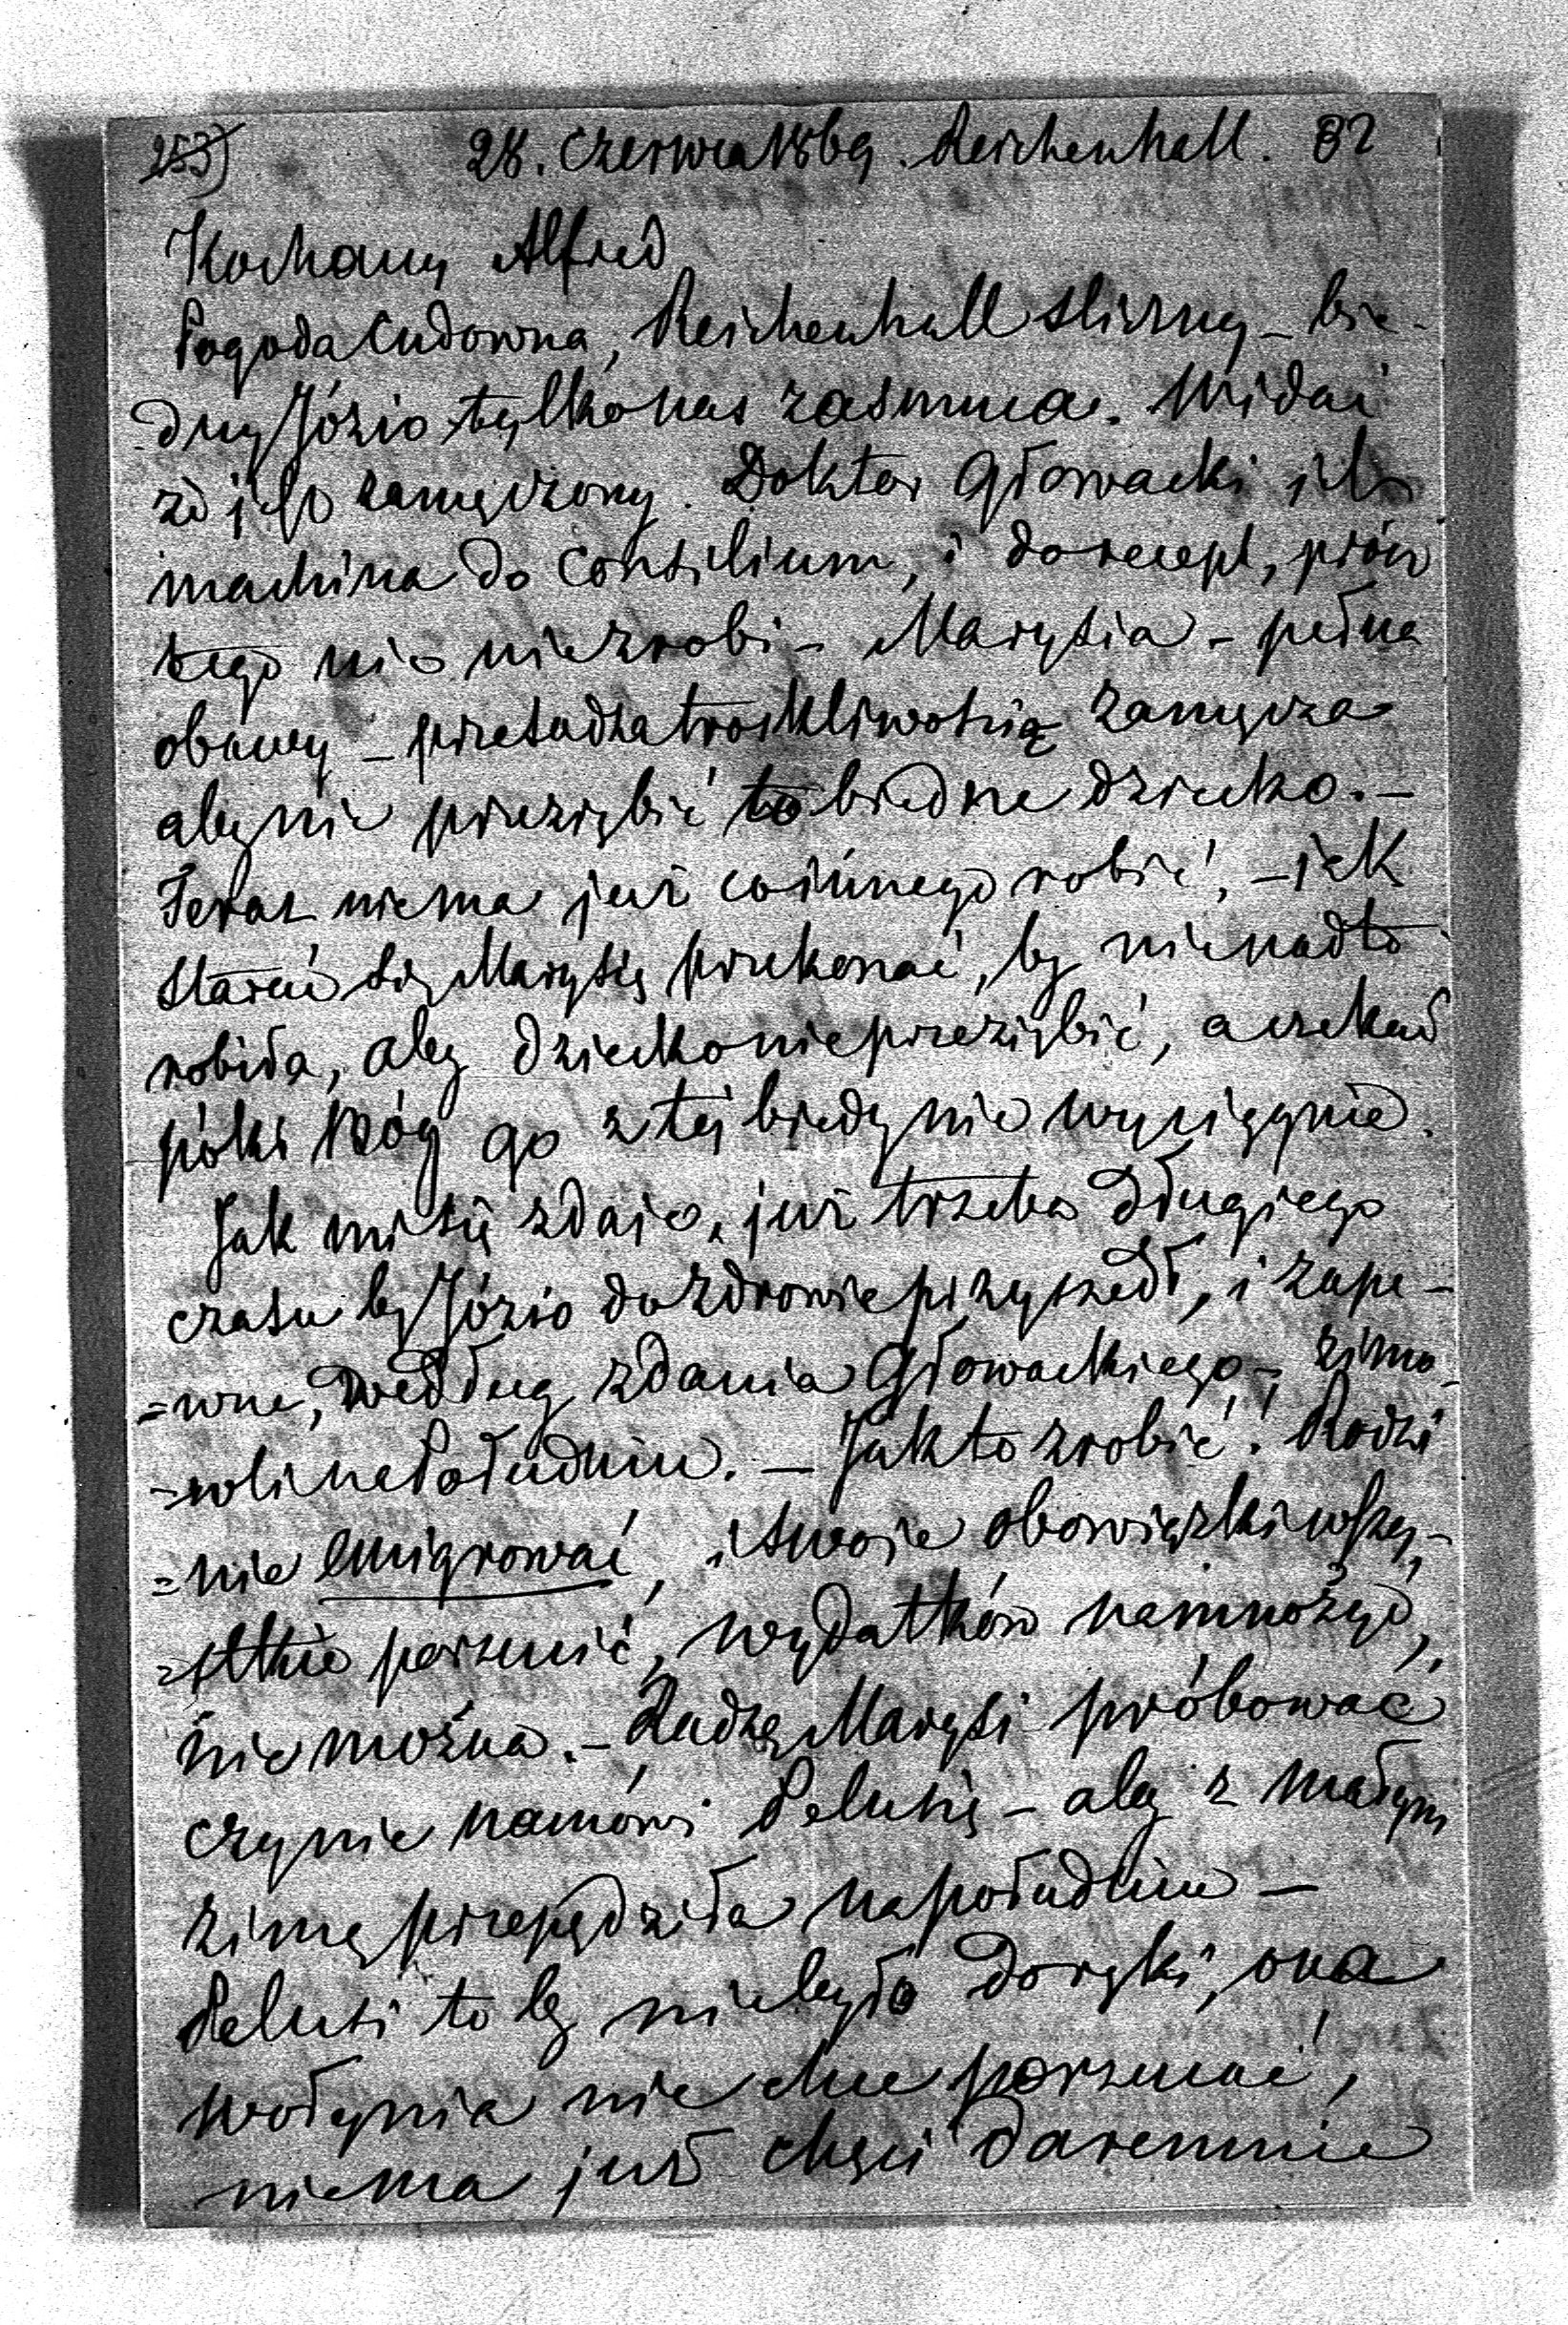 253) 28. Czerwca 1869. Reichenhall. 82
Kochany Alfred
Pogoda Cudowna, Reichenhall sliczny – bie-
dny Józio tylko nas zasmuca. Widać
że jest zamęczony. Doktor Głowacki jest
machina do Consilium, i do recept, prócz
tego nic nie zrobi – Marysia – pełna
obawy – przesadza troskliwością zamęcza
aby nie przeziębić to biedne dziecko. –
Teraz niema już co innego robić, – jak
starać się Marysię przekonać, by nie nadto
robiła, aby dziecko nie przeziębić, a czekać
póki Bóg go z tej biedy nie wyciągnie.
Jak mi się zdaje, już trzeba długiego
czasu by Józio do zdrowie przyszedł, i zape-
=wne, według zdania Głowackiego –, zimo-
=wli na Południu. – Jak to zrobić! Rodzi
=nie emigrować, i swoje obowiązki wszy-
=stkie porzucić, wydatków namnożyć,
nie można. – Radzę Marysi próbować
czy nie namówi Pelusię – aby z małym
zimę przepędziła na południu –
Pelusi to by nie było do ręki, ona
Wołynia nie chce porzucać,
niema już chęci daremnie